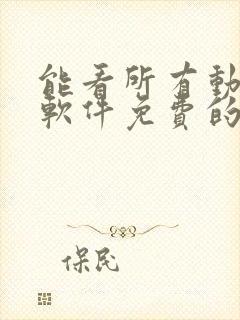 能看所有動
軟件免費的
保民